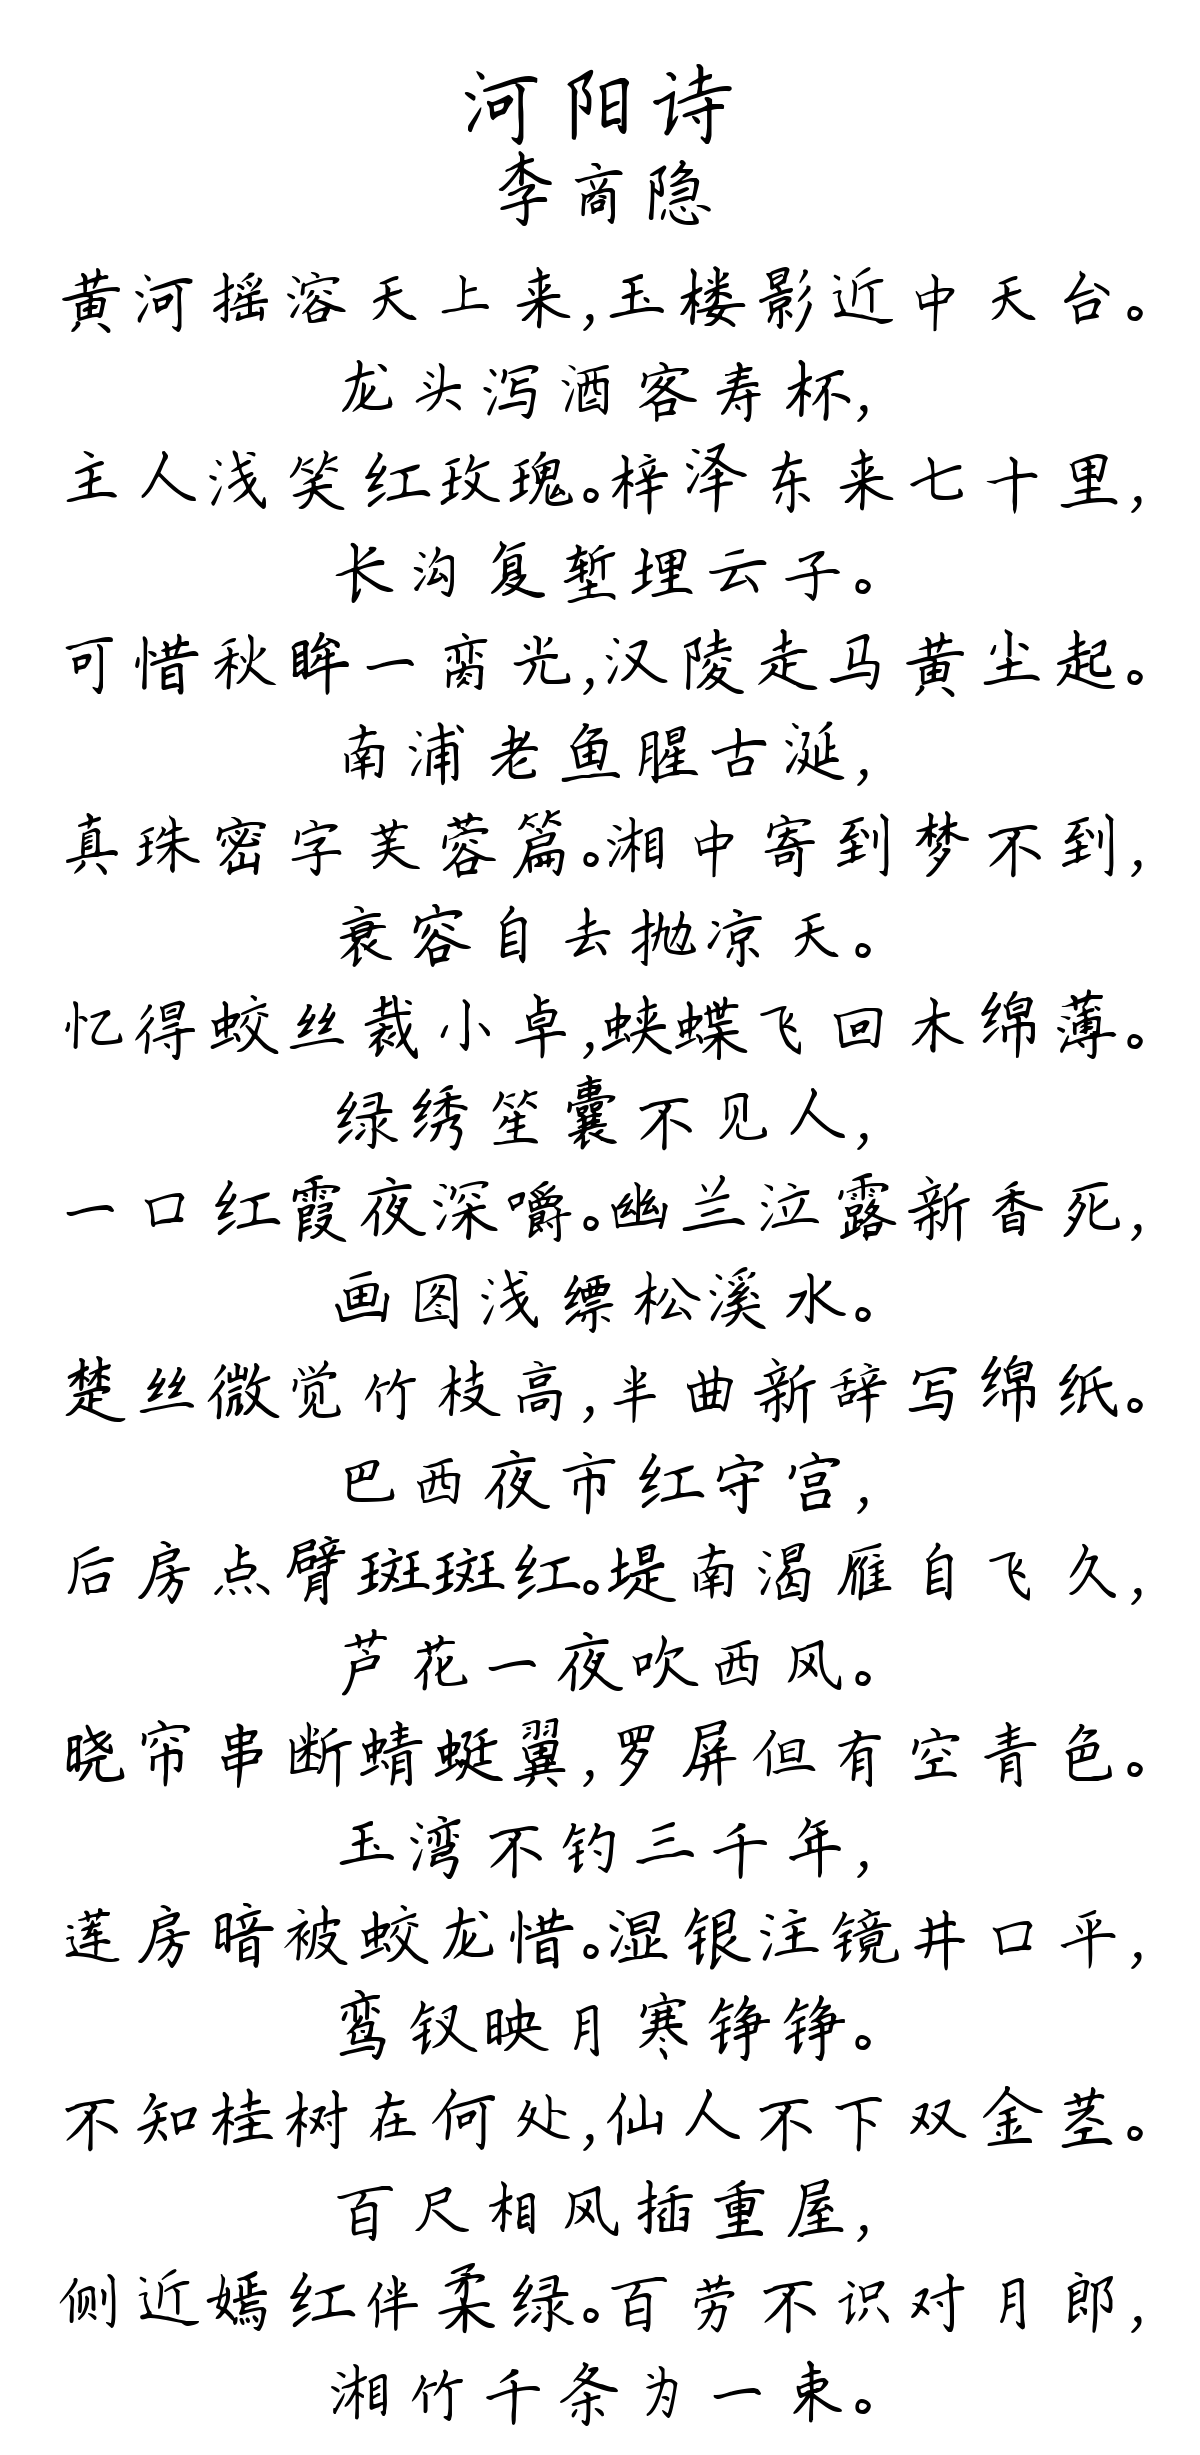 河阳诗
李商隐
黄河摇溶天上来,玉楼影近中天台。
龙头泻酒客寿杯,
主人浅笑红玫瑰。梓泽东来七十里,
长沟复堑埋云子。
可惜秋眸一脔光,汉陵走马黄尘起。
南浦老鱼腥古涎,
真珠密字芙蓉篇。湘中寄到梦不到,
衰容自去抛凉天。
忆得蛟丝裁小卓,蛱蝶飞回木绵薄。
绿绣笙囊不见人,
一口红霞夜深嚼。幽兰泣露新香死,
画图浅缥松溪水。
楚丝微觉竹枝高,半曲新辞写绵纸。
巴西夜市红守宫,
后房点臂斑斑红。堤南渴雁自飞久,
芦花一夜吹西风。
晓帘串断蜻蜓翼,罗屏但有空青色。
玉湾不钓三千年,
莲房暗被蛟龙惜。湿银注镜井口平,
鸾钗映月寒铮铮。
不知桂树在何处,仙人不下双金茎。
百尺相风插重屋,
侧近嫣红伴柔绿。百劳不识对月郎,
湘竹千条为一束。